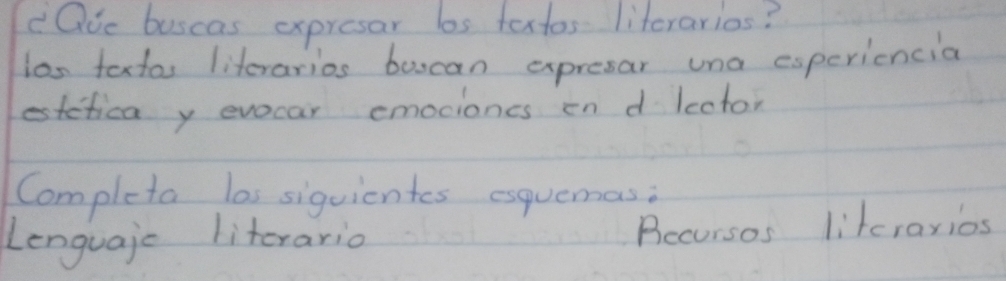 ¿Qúe buscas expresar los textos literarios?
los textos literarios buscan expresar una esperiencia
estética y evocar emociones en el lector
Completa los siguientes esquemas:
Lenguaje literario Recursos literarios